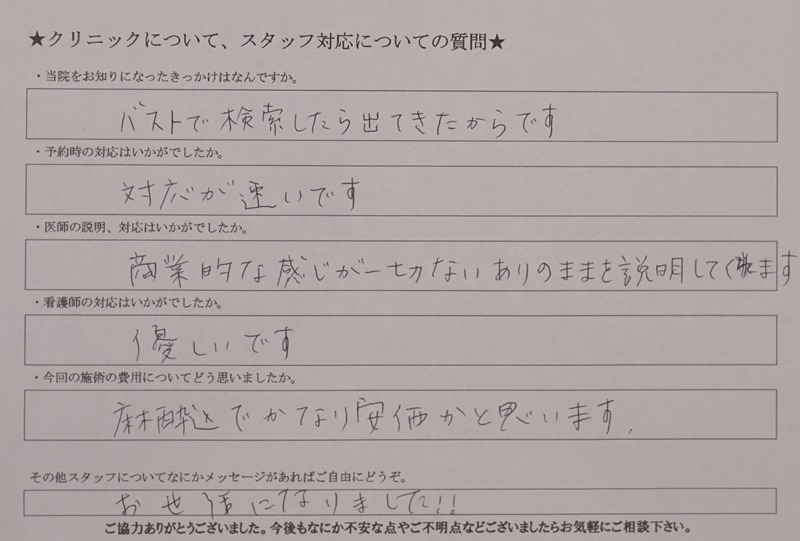 ★クリニックについて、スタッフ対応についての質問★
・当院をお知りになったきっかけはなんですか。
バストで検索したら出てきたからです
・予約時の対応はいかがでしたか。
対応が速いです
・医師の説明、対応はいかがでしたか。
商業的な感じが一切ないありのままを説明してくれます
・看護師の対応はいかがでしたか。
優しいです
・今回の施術の費用についてどう思いましたか。
麻酔込でかなり安価かと思います.
その他スタッフについてなにかメッセージがあればご自由にどうぞ。
お世話になりました!!
ご協力ありがとうございました。今後もなにか不安な点やご不明点などございましたらお気軽にご相談下さい。